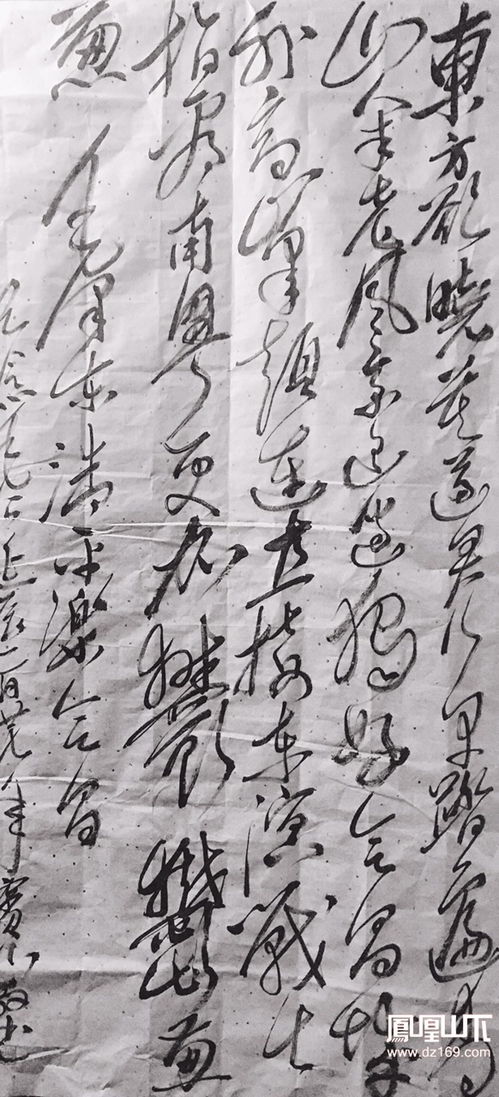 東方欲曉莫道君行早踏遍青
山人未老風景這邊獨好会昌城
外高峯顛連直接東溟戰士
指看南粵更加鬱鬱葱
葱 毛澤東清平樂会昌
鳳凰山下
www.dz169.com